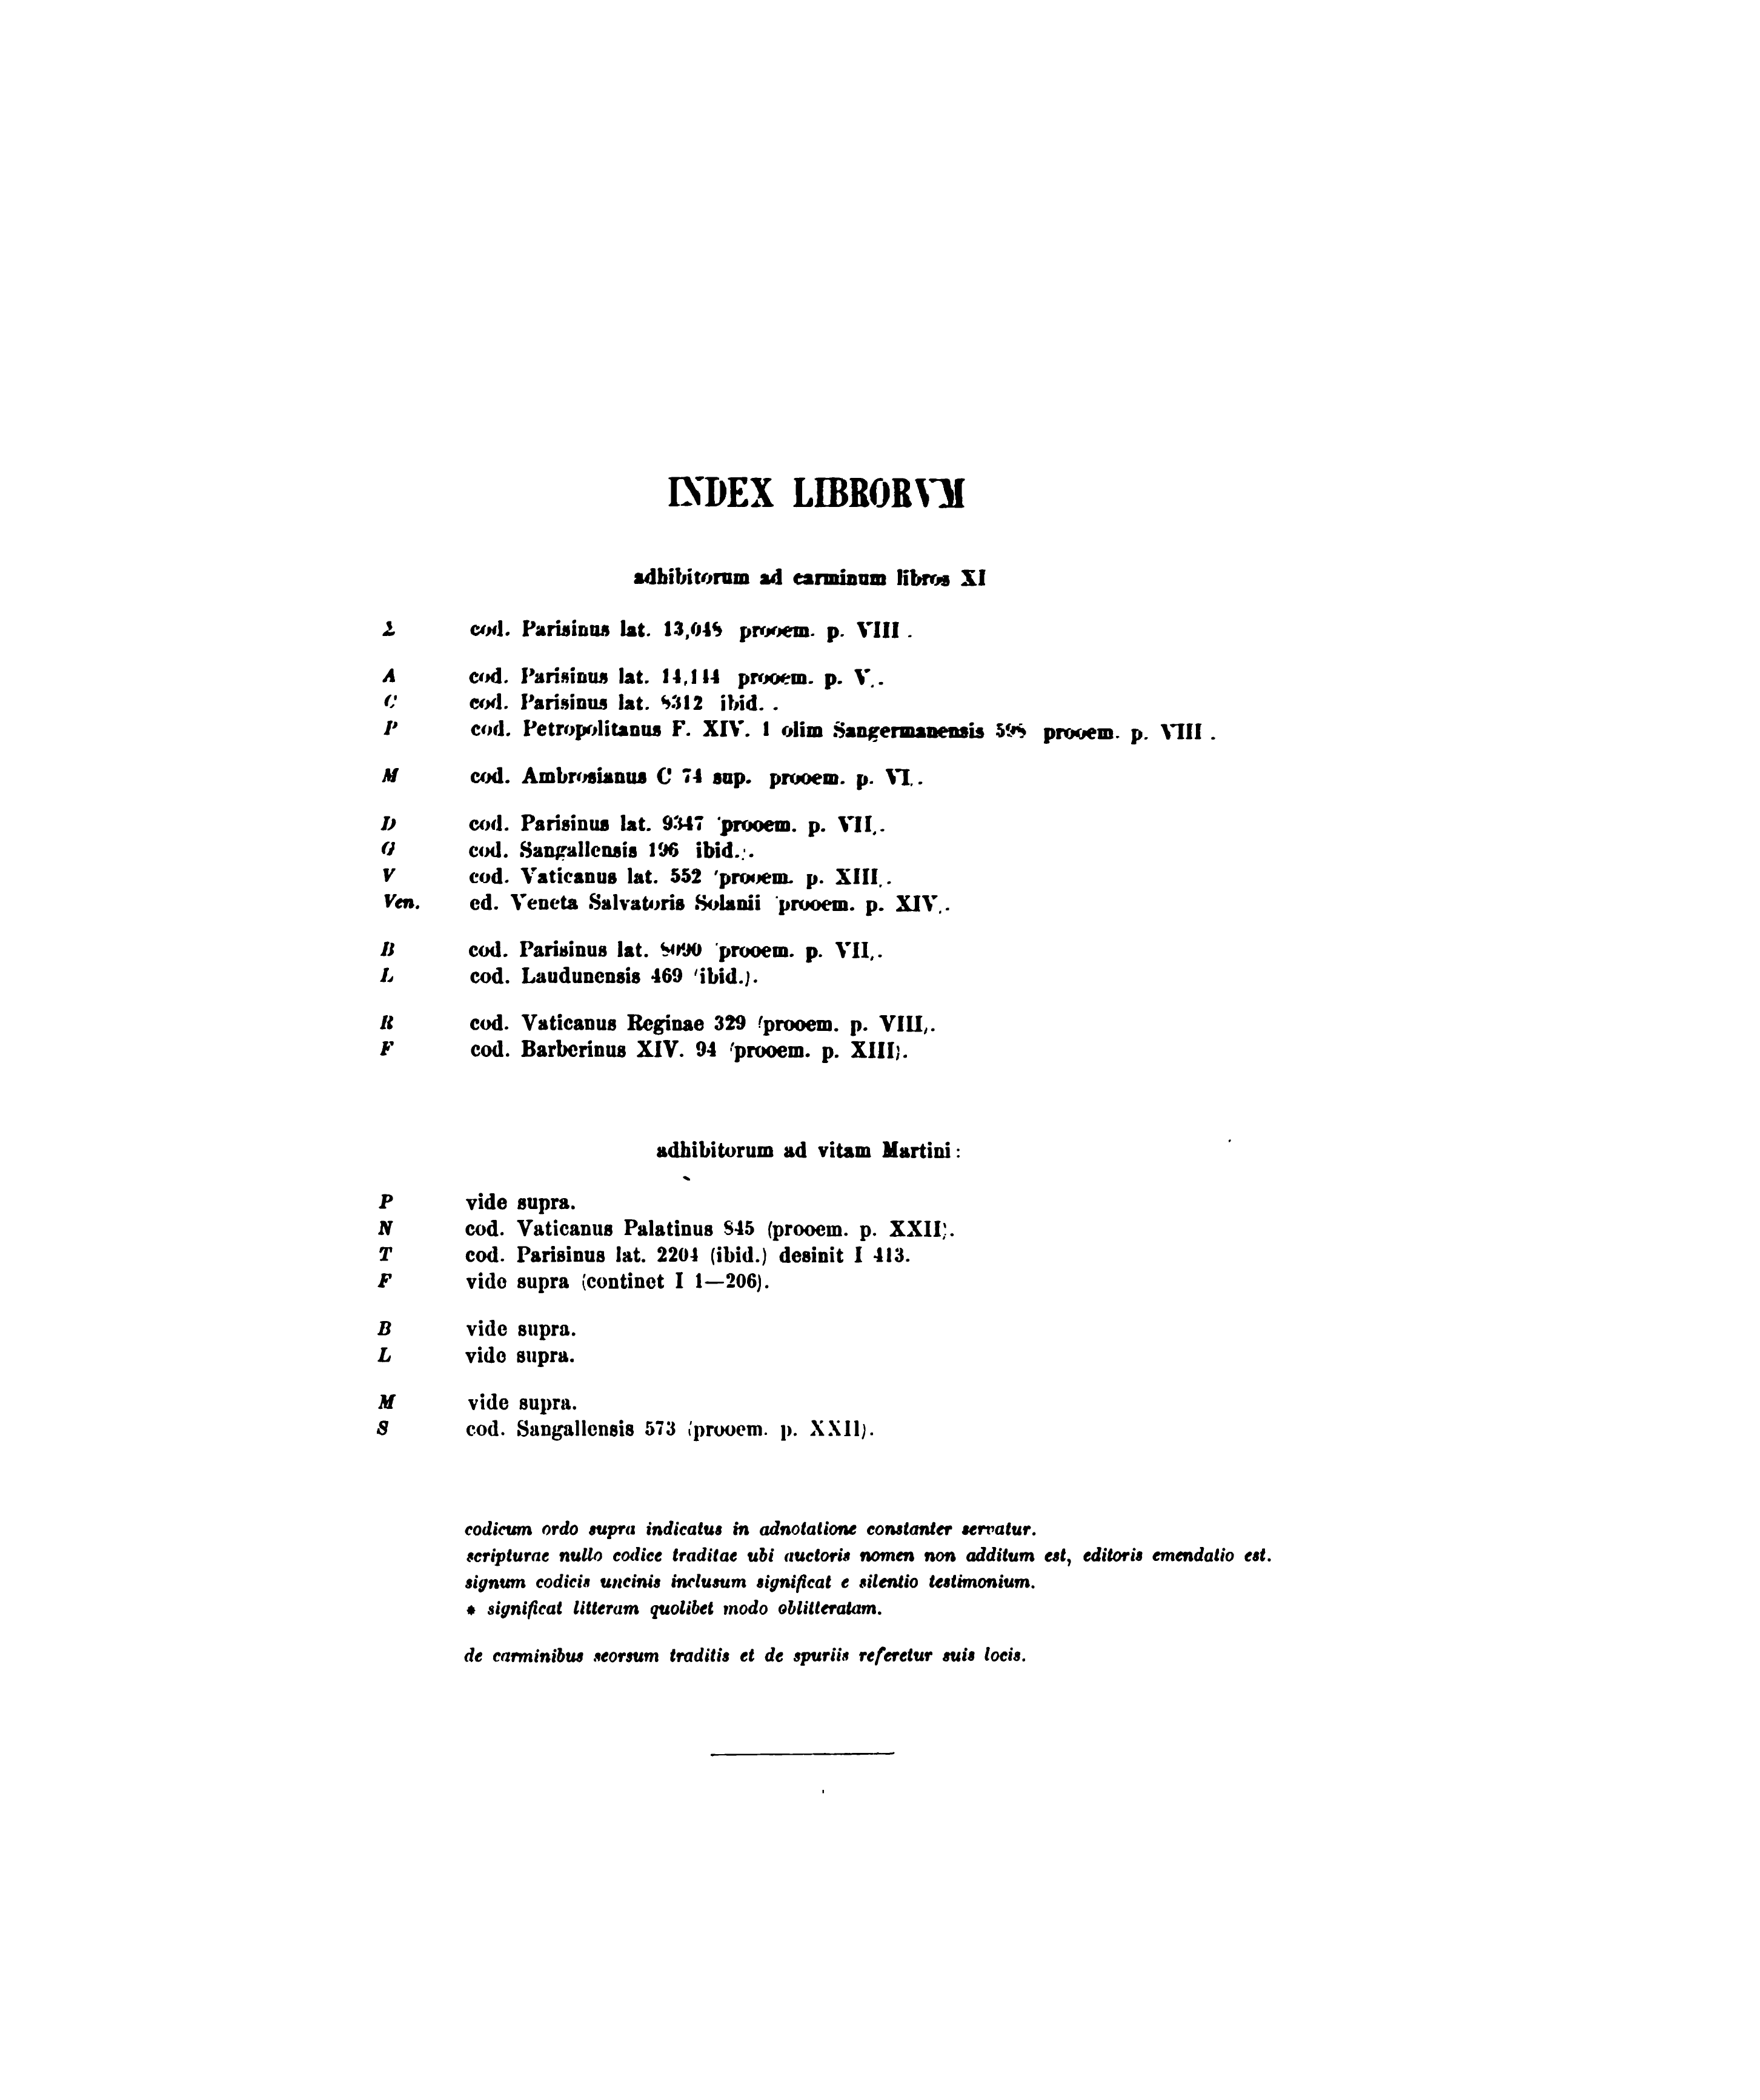 INDEX LIBRORVM
adhibitorum ad carminum libros XI
Σ cod. Parisinus lat. 13,048 prooem. p. VIII .
A cod. Parisinus lat. 14,144 prooem. p. V.
C cod. Parisinus lat. 8312 ibid. .
P cod. Petropolitanus F. XIV. 1 olim Sangermanensis 598 prooem. p. VIII .
M cod. Ambrosianus C 74 sup. prooem. p. VI.
D cod. Parisinus lat. 9347 (prooem. p. VII).
G cod. Sangallensis 196 ibid.).
V cod. Vaticanus lat. 552 (prooem. p. XIII).
Ven. ed. Veneta Salvatoris Solanii (prooem. p. XIV).
B cod. Parisinus lat. 8090 (prooem. p. VII).
L cod. Laudunensis 469 (ibid.).
R cod. Vaticanus Reginae 329 (prooem. p. VIII).
F cod. Barberinus XIV. 94 (prooem. p. XIII).
adhibitorum ad vitam Martini:
P vide supra.
N cod. Vaticanus Palatinus 845 (prooem. p. XXII).
T cod. Parisinus lat. 2204 (ibid.) desinit I 413.
F vide supra (continet I 1—206).
B vide supra.
L vide supra.
M vide supra.
S cod. Sangallensis 573 (prooem. p. XXII).
codicum ordo supra indicatus in adnotatione constanter servatur.
scripturae nullo codice traditae ubi auctoris nomen non additum est, editoris emendatio est.
signum codicis uncinis inclusum significat e silentio testimonium.
* significat litteram quolibet modo oblitteratam.
de carminibus seorsum traditis et de spuriis referetur suis locis.